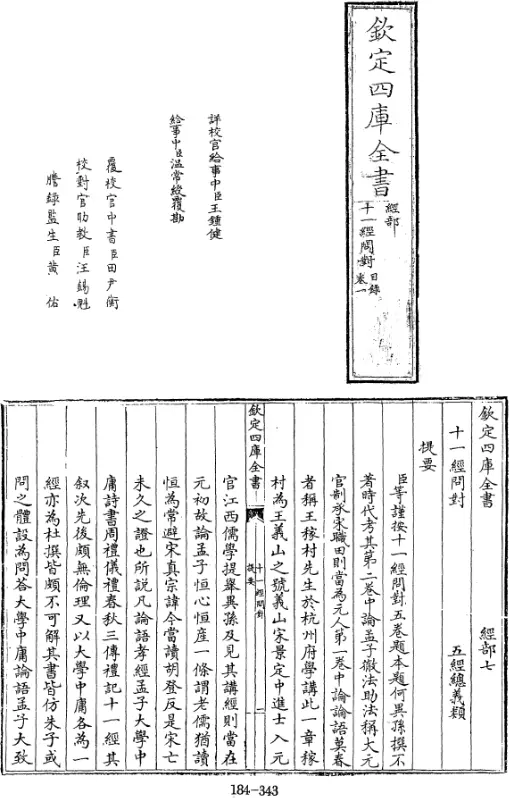 欽定四庫全書
經部
十一經問對
目錄
卷一
詳校官給事中臣王鍾健
給事中臣溫常綬覆勘
覆校官中書臣田尹衡
校對官助教臣汪錫魁
謄錄監生臣黃佑
欽定四庫全書 經部七
十一經問對 五經總義類
提要
臣等謹按十一經問對五卷題本題何異孫撰不
著時代考其第二卷中論孟子徹法助法稱大元
官制承宋職田則當為元人第一卷中論論語莫春
者稱王稼村先生於杭州府學講此一章稼
村為王義山之號義山宋景定中進士入元
欽定四庫全書
十一經問對
提要
一
官江西儒學提舉異孫及見其講經則當在
元初故論孟子恒心恒產一條謂老儒猶讀
恒為常避宋真宗諱今當讀胡登反是宋亡
未久之證也所說凡論語孝經孟子大學中
庸詩書周禮儀禮春秋三傳禮記十一經其
叙次先後頗無倫理又以大學中庸各為一
經亦為杜撰皆頗不可解其書皆仿朱子或
問之體設為問答大學中庸論語孟子大致
184-343